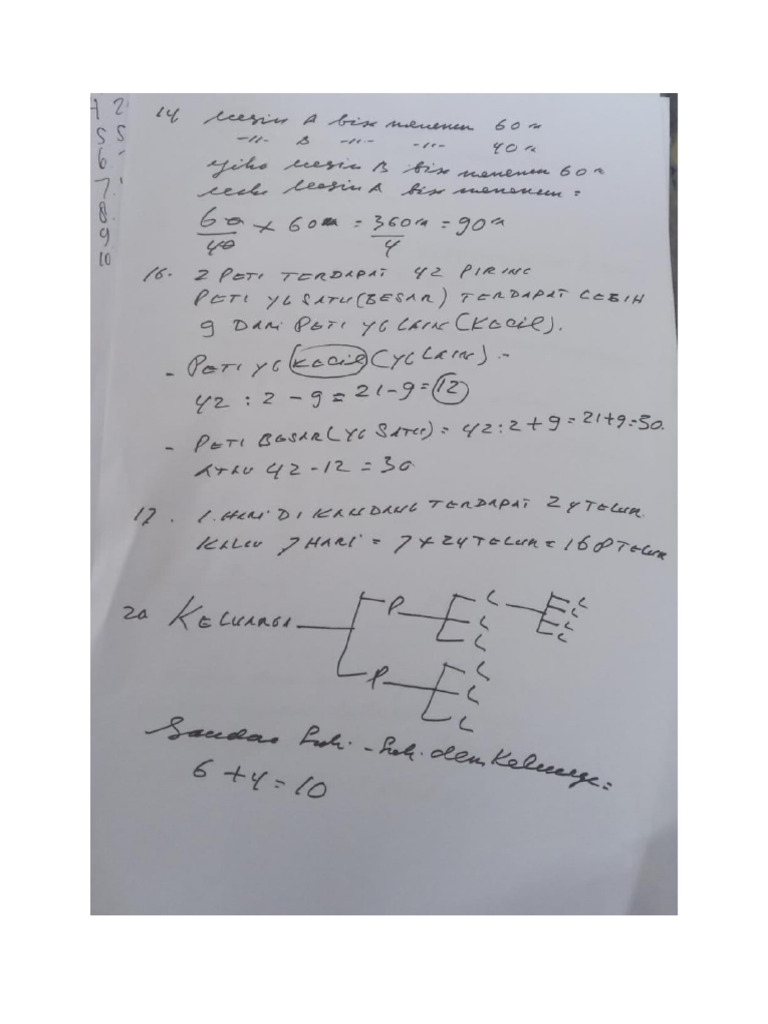 4 2
5 5
6
7.
8.
9
10
14 Mesin A bisa menenun 60 m
-"- B -"- -"- 40 m
jika Mesin B bisa menenun 60 m
maka Mesin A bisa menenun =
60/40 x 60m = 360m/4 = 90m
16. 2 PETI TERDAPAT 42 PIRING
PETI YG SATU (BESAR) TERDAPAT LEBIH
9 DARI PETI YG LAIN (KECIL).
- PETI YG KECIL (YG LAIN) :-
42 : 2 - 9 = 21 - 9 = 12
- PETI BESAR (YG SATU) = 42 : 2 + 9 = 21 + 9 = 30.
ATAU 42 - 12 = 30
17. 1 HARI DI KANDANG TERDAPAT 24 TELUR
KALAU 7 HARI = 7 x 24 TELUR = 168 TELUR
L L
20 KELUARGA P L L
L L
L
P L
L
Saudara laki-laki dlm Keluarga =
6 + 4 = 10